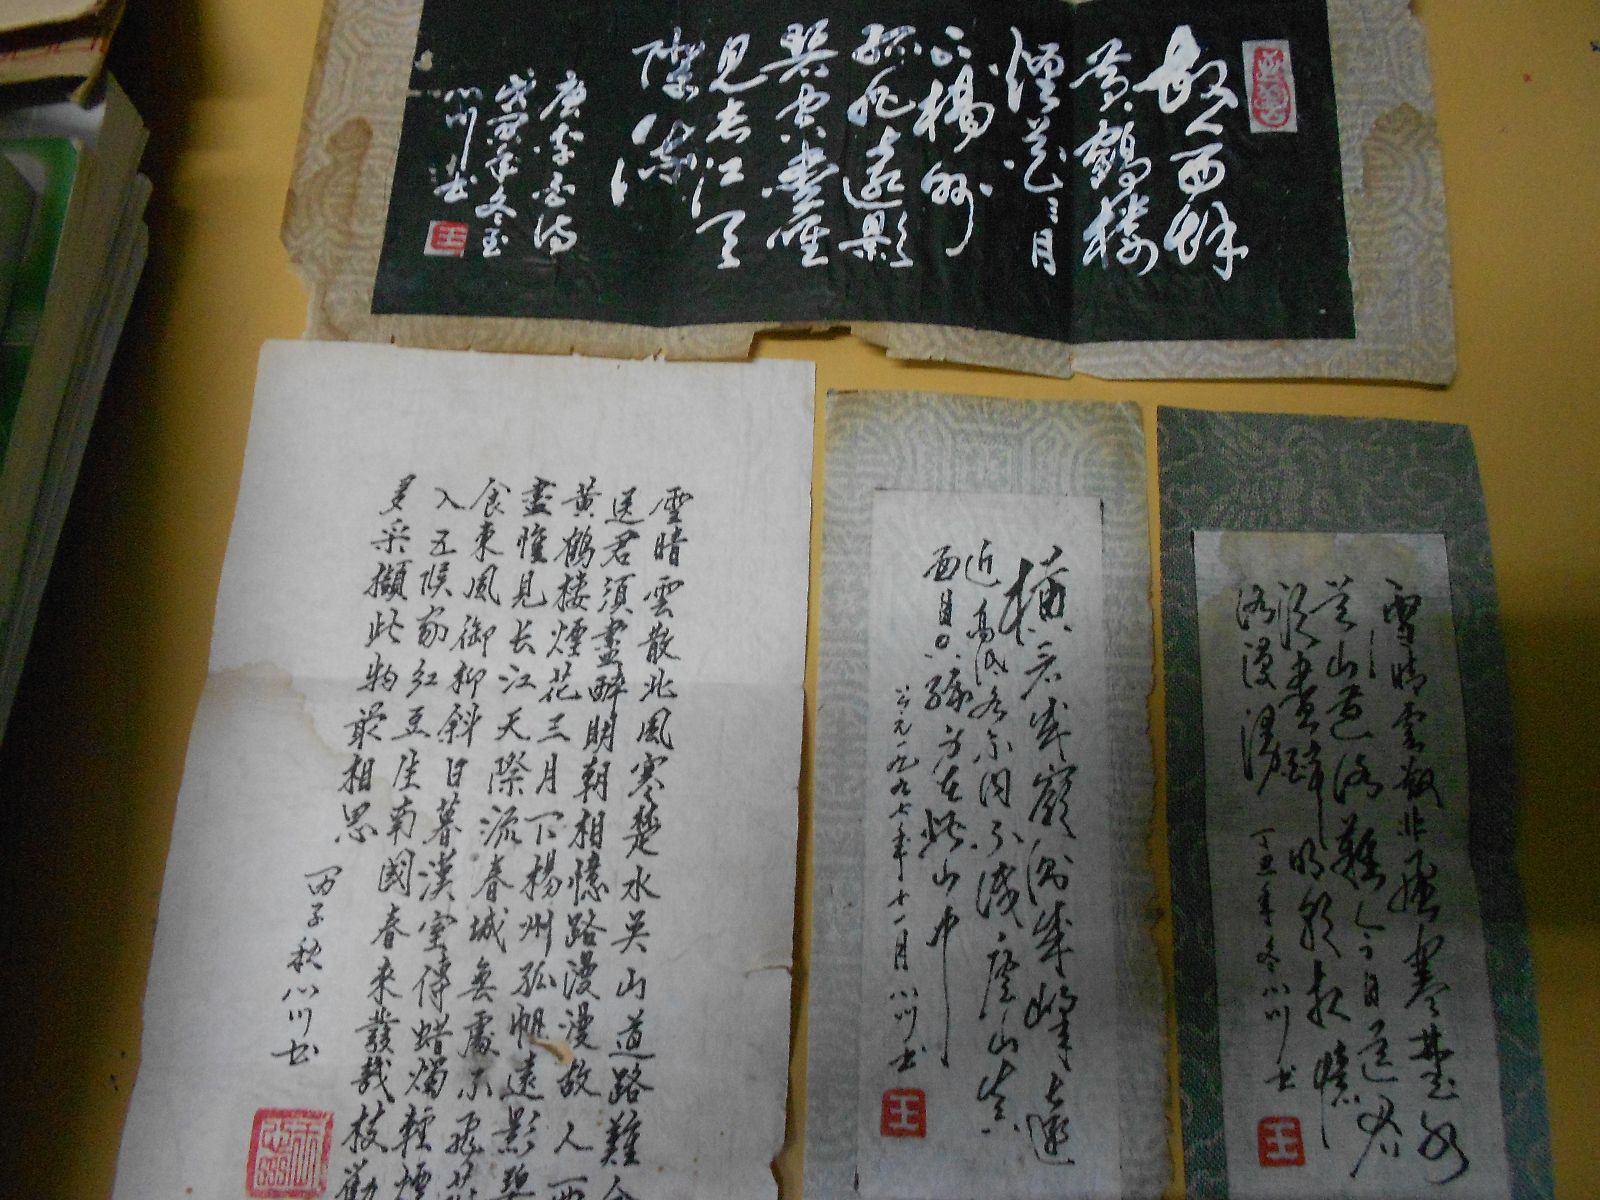 故人西辞
黄鹤楼
煙花三月
下楊州
孤帆遠影
碧空尽唯
見長江天
際流
唐李白诗
冬玉
小川书
王
雪晴雲散北風寒楚水吴山道路難今
送君須盡醉明朝相憶路漫漫故人西
黄鹤楼煙花三月下楊州孤帆遠影碧
盡惟見长江天際流春城無處不飛花
食東風御柳斜日暮漢宫傳蜡燭輕煙
入五候家红豆生南國春來發幾枝勸
多采擷此物最相思
丙子秋小川书
横看成嶺側成峰遠
近高低各不同不識廬山真
面目只缘身在此山中
公元一九九七年十一月小川书
王
雪晴雲散北風寒楚水
吴山道路難今日送君
须盡醉明朝相憶
路漫漫
丁丑年冬小川书
王